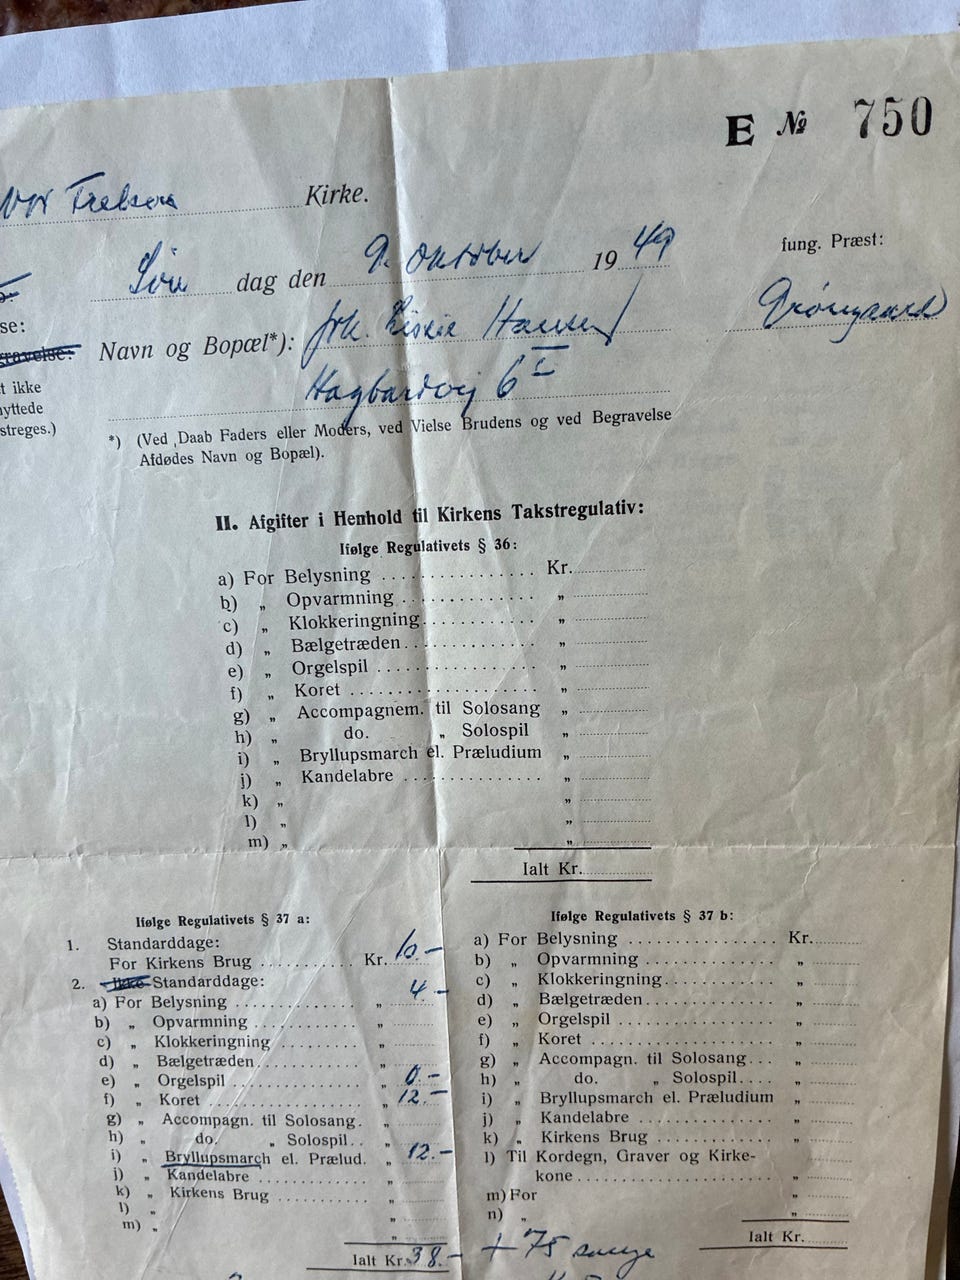 E № 750
Vor Frelsers Kirke.
Søn dag den 9. Oktober 1949
fung. Præst:
se:
gravelse:
Navn og Bopæl*): frk. Hansen
t ikke
nyttede
streges.)
Hagbardvej 6 I
*) (Ved Daab Faders eller Moders, ved Vielse Brudens og ved Begravelse
Afdødes Navn og Bopæl).
II. Afgifter i Henhold til Kirkens Takstregulativ:
Ifølge Regulativets § 36:
a) For Belysning ................ Kr.
b) „ Opvarmning .............. „
c) „ Klokkeringning............ „
d) „ Bælgetræden.............. „
e) „ Orgelspil ................ „
f) „ Koret .................... „
g) „ Accompagnem. til Solosang „
h) „ do. „ Solospil „
i) „ Bryllupsmarch el. Præludium „
j) „ Kandelabre .............. „
k) „ „
l) „ „
m) „ „
Ialt Kr.
Ifølge Regulativets § 37 a:
1. Standarddage:
For Kirkens Brug .......... Kr. 10.-
2. Ikke Standarddage:
a) For Belysning ............ „ 4.-
b) „ Opvarmning .......... „
c) „ Klokkeringning ........ „
d) „ Bælgetræden.......... „
e) „ Orgelspil .............. „ 0.-
f) „ Koret ................ „ 12.-
g) „ Accompagn. til Solosang. „
h) „ do. „ Solospil.. „
i) „ Bryllupsmarch el. Prælud. „ 12.-
j) „ Kandelabre ............ „
k) „ Kirkens Brug .......... „
l) „ „
m) „ „
Ialt Kr. 38.- + 75 sange
Ifølge Regulativets § 37 b:
a) For Belysning .............. Kr.
b) „ Opvarmning ............ „
c) „ Klokkeringning.......... „
d) „ Bælgetræden............ „
e) „ Orgelspil .............. „
f) „ Koret .................. „
g) „ Accompagn. til Solosang... „
h) „ do. „ Solospil.... „
i) „ Bryllupsmarch el. Præludium „
j) „ Kandelabre ............ „
k) „ Kirkens Brug .......... „
l) Til Kordegn, Graver og Kirke-
kone ...................... „
m) For „
n) „ „
Ialt Kr.